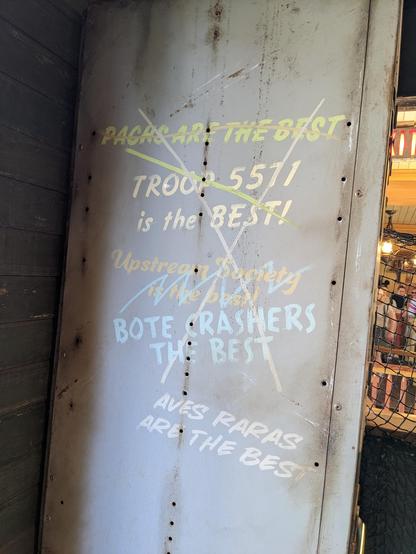 PACHS ARE THE BEST
TROOP 5571
is the BEST!
Upstream Society
is the best!
BOTE CRASHERS
THE BEST
AVES RARAS
ARE THE BEST